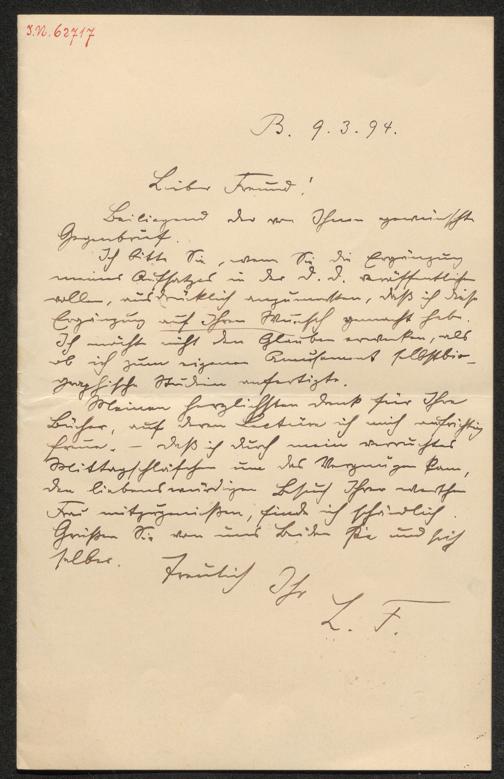 I.N. 62717
B. 9. 3. 94.
Lieber Freund!
Beiliegend der von Ihnen gewünschte
Gegenbrief.
Ich bitte Sie, wenn Sie die Ergänzung
meines Aufsatzes in der D. D. veröffentlichen
wollen, ausdrücklich anzumerken, daß ich diese
Ergänzung auf Ihren Wunsch gemacht habe.
Ich möchte nicht den Glauben erwecken, als
ob ich zum eigenen Amusement selbstbio-
graphische Studien anfertigte.
Meinen herzlichsten Dank für Ihre
Bücher, auf deren Lectüre ich mich aufrichtig
freue. – daß ich durch mein verruchtes
Mittagsschläfchen um das Vergnügen kam,
den liebenswürdigen Besuch Ihrer werthen
Frau mitzugenießen, finde ich schändlich.
Grüßen Sie von uns Beiden Sie und sich
selber.
Freulich Ihr
L. F.